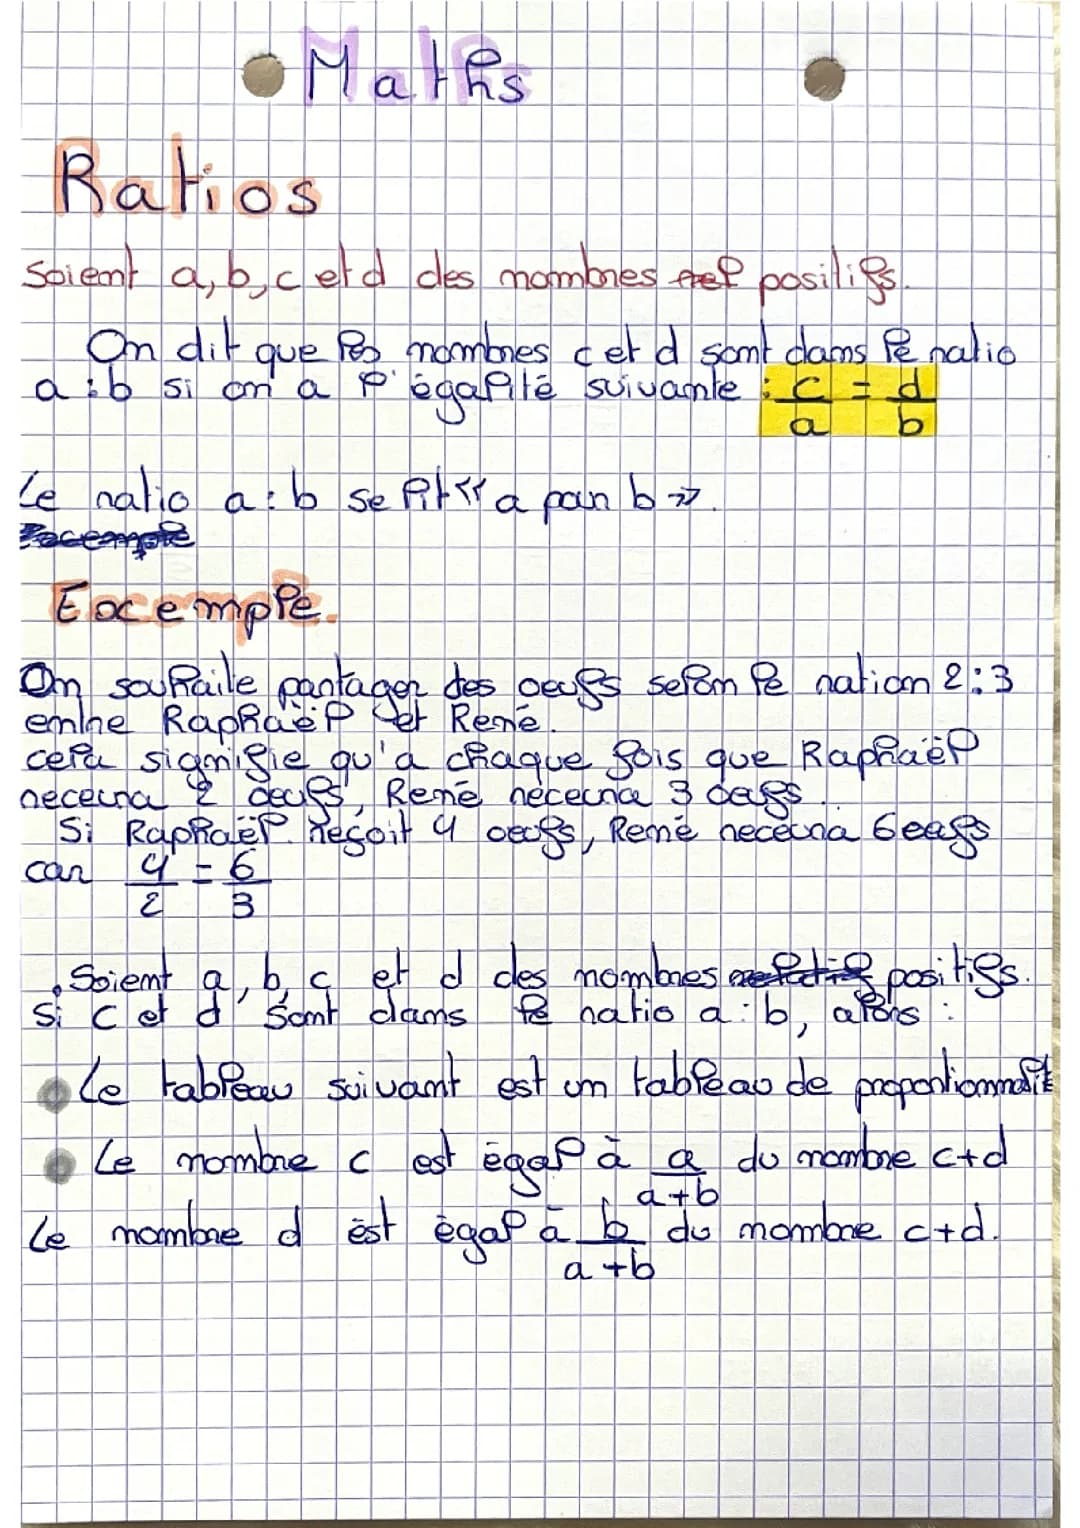 Maths
Ratios
Soient a, b, c et d des nombres positifs.
On dit que les nombres c et d sont dans le ratio
a : b si on a l'égalité suivante : c/a = d/b
Le ratio a : b se lit << a par b >>.
Exemple
Exemple.
On souhaite partager des oeufs selon le ration 2 : 3
entre Raphaël et René.
cela signifie qu'a chaque fois que Raphaël
recevra 2 oeufs, René recevra 3 oeufs.
Si Raphaël reçoit 4 oeufs, René recevra 6 oeufs
car 4/2 = 6/3
. Soient a, b, c et d des nombres relatif positifs.
Si c et d sont dans le ratio a : b, alors :
Le tableau suivant est un tableau de proportionnalit
Le nombre c est égal à a/a+b du nombre c+d
Le nombre d est égal à b/a+b du nombre c+d.